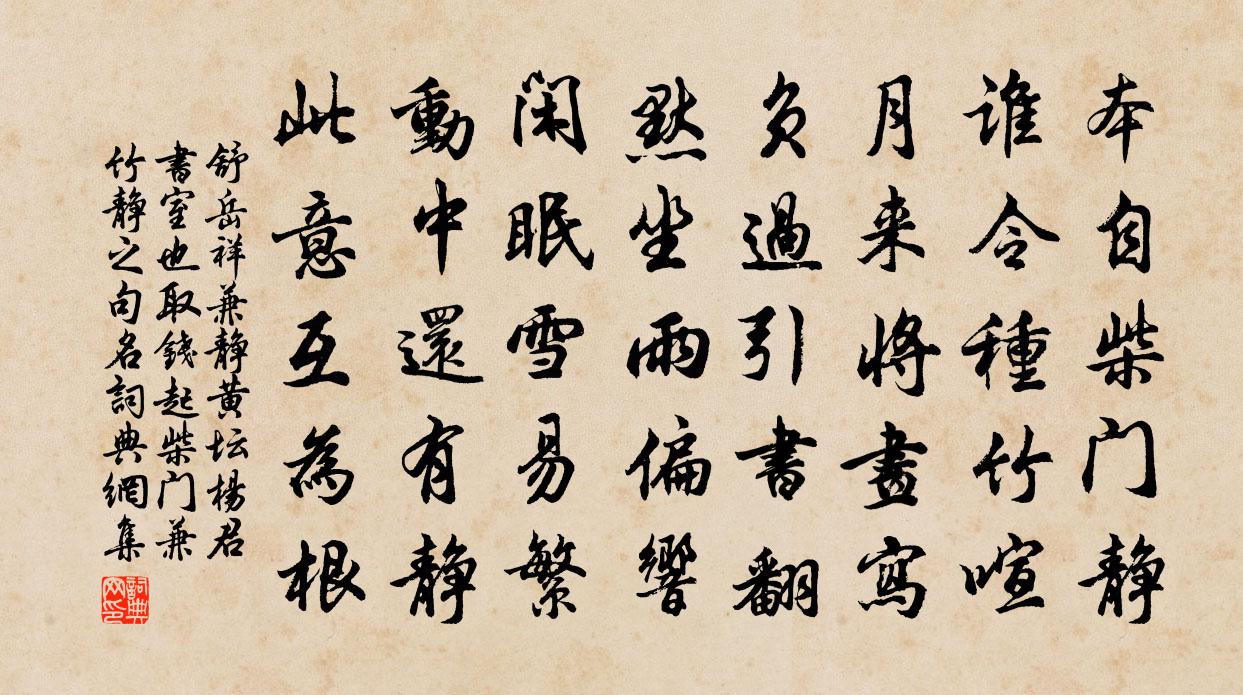 本自柴门静
谁令種竹喧
月来將畫寫
负過引書翻
黙坐雨偏響
闲眠雪易繁
動中還有静
此意互為根
舒岳祥兼静黄坛楊君
書室也取錢起柴门兼
竹静之句名詞典網集
詞典